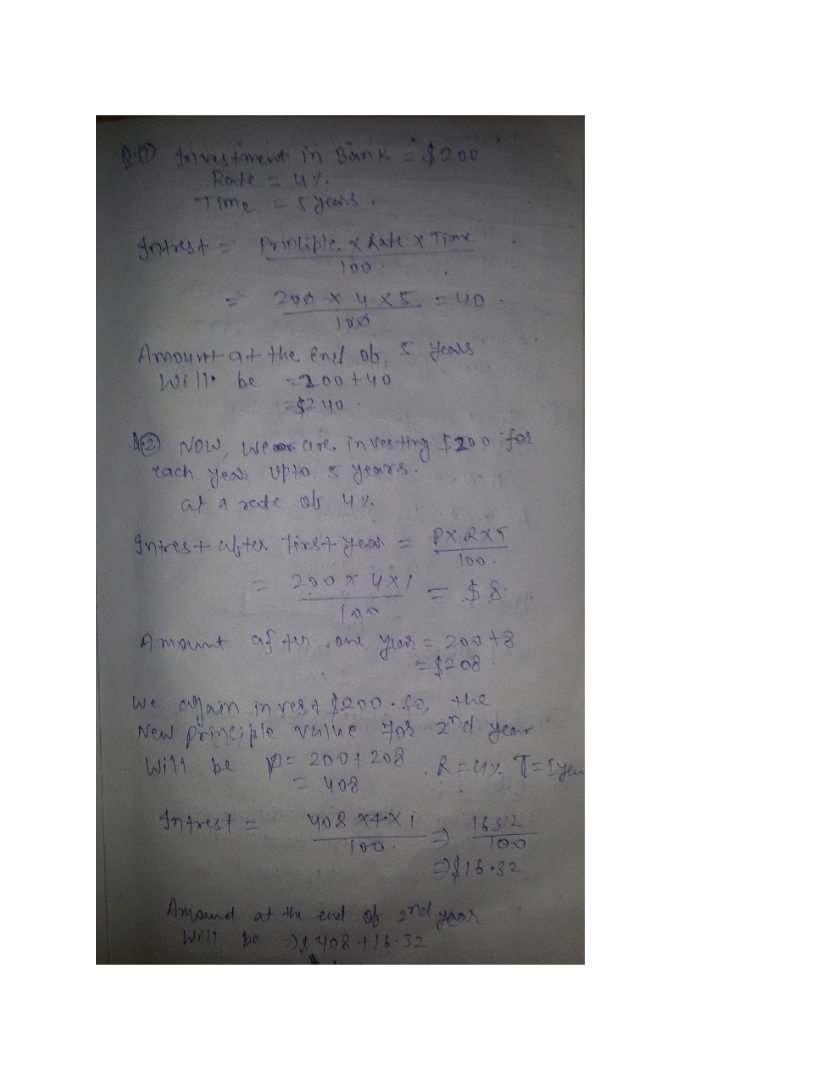 Q.① Investment in Bank = $200
Rate = 4%.
Time = 5 years.
Intrest = Principle × Rate × Time
100.
= 200 × 4 × 5 = 40.
100
Amount at the End of 5 years
Will be = 200+40
= $240.
Q.② NOW, we are investing $200 for
each year upto 5 years.
at a rate of 4%.
Intrest after first year = P×R×T
100.
= 200 × 4×1 = $8.
100
Amount after one year = 200+8
= $208.
We again invest $200. so, the
New principle value for 2nd year
Will be P= 200+208 . R=4%. T=1yea
= 408
Intrest = 408 ×4×1 ⇒ 1632
100. 100
⇒ $16.32
Amound at the end of 2nd year
Will be ⇒ $ 408+16.32